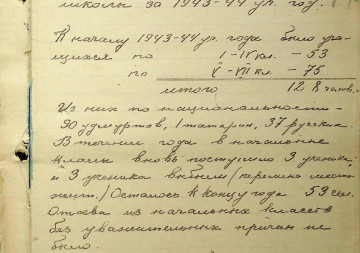 школы за 1943-44 уч. год.
К началу 1943-44 уч. года было уча-
щихся по I-IV кл. - 53
по V-VII кл. - 75
итого 128 челов.
Из них по национальности -
90 удмуртов, 1 татарин, 37 русских
В течение года в начальные
классы вновь поступило 3 ученика,
и 3 ученика выбыли /перемена место
жит./ Осталось к концу года 53 чел.
Отсева из начальных классов
без уважительных причин не
было.